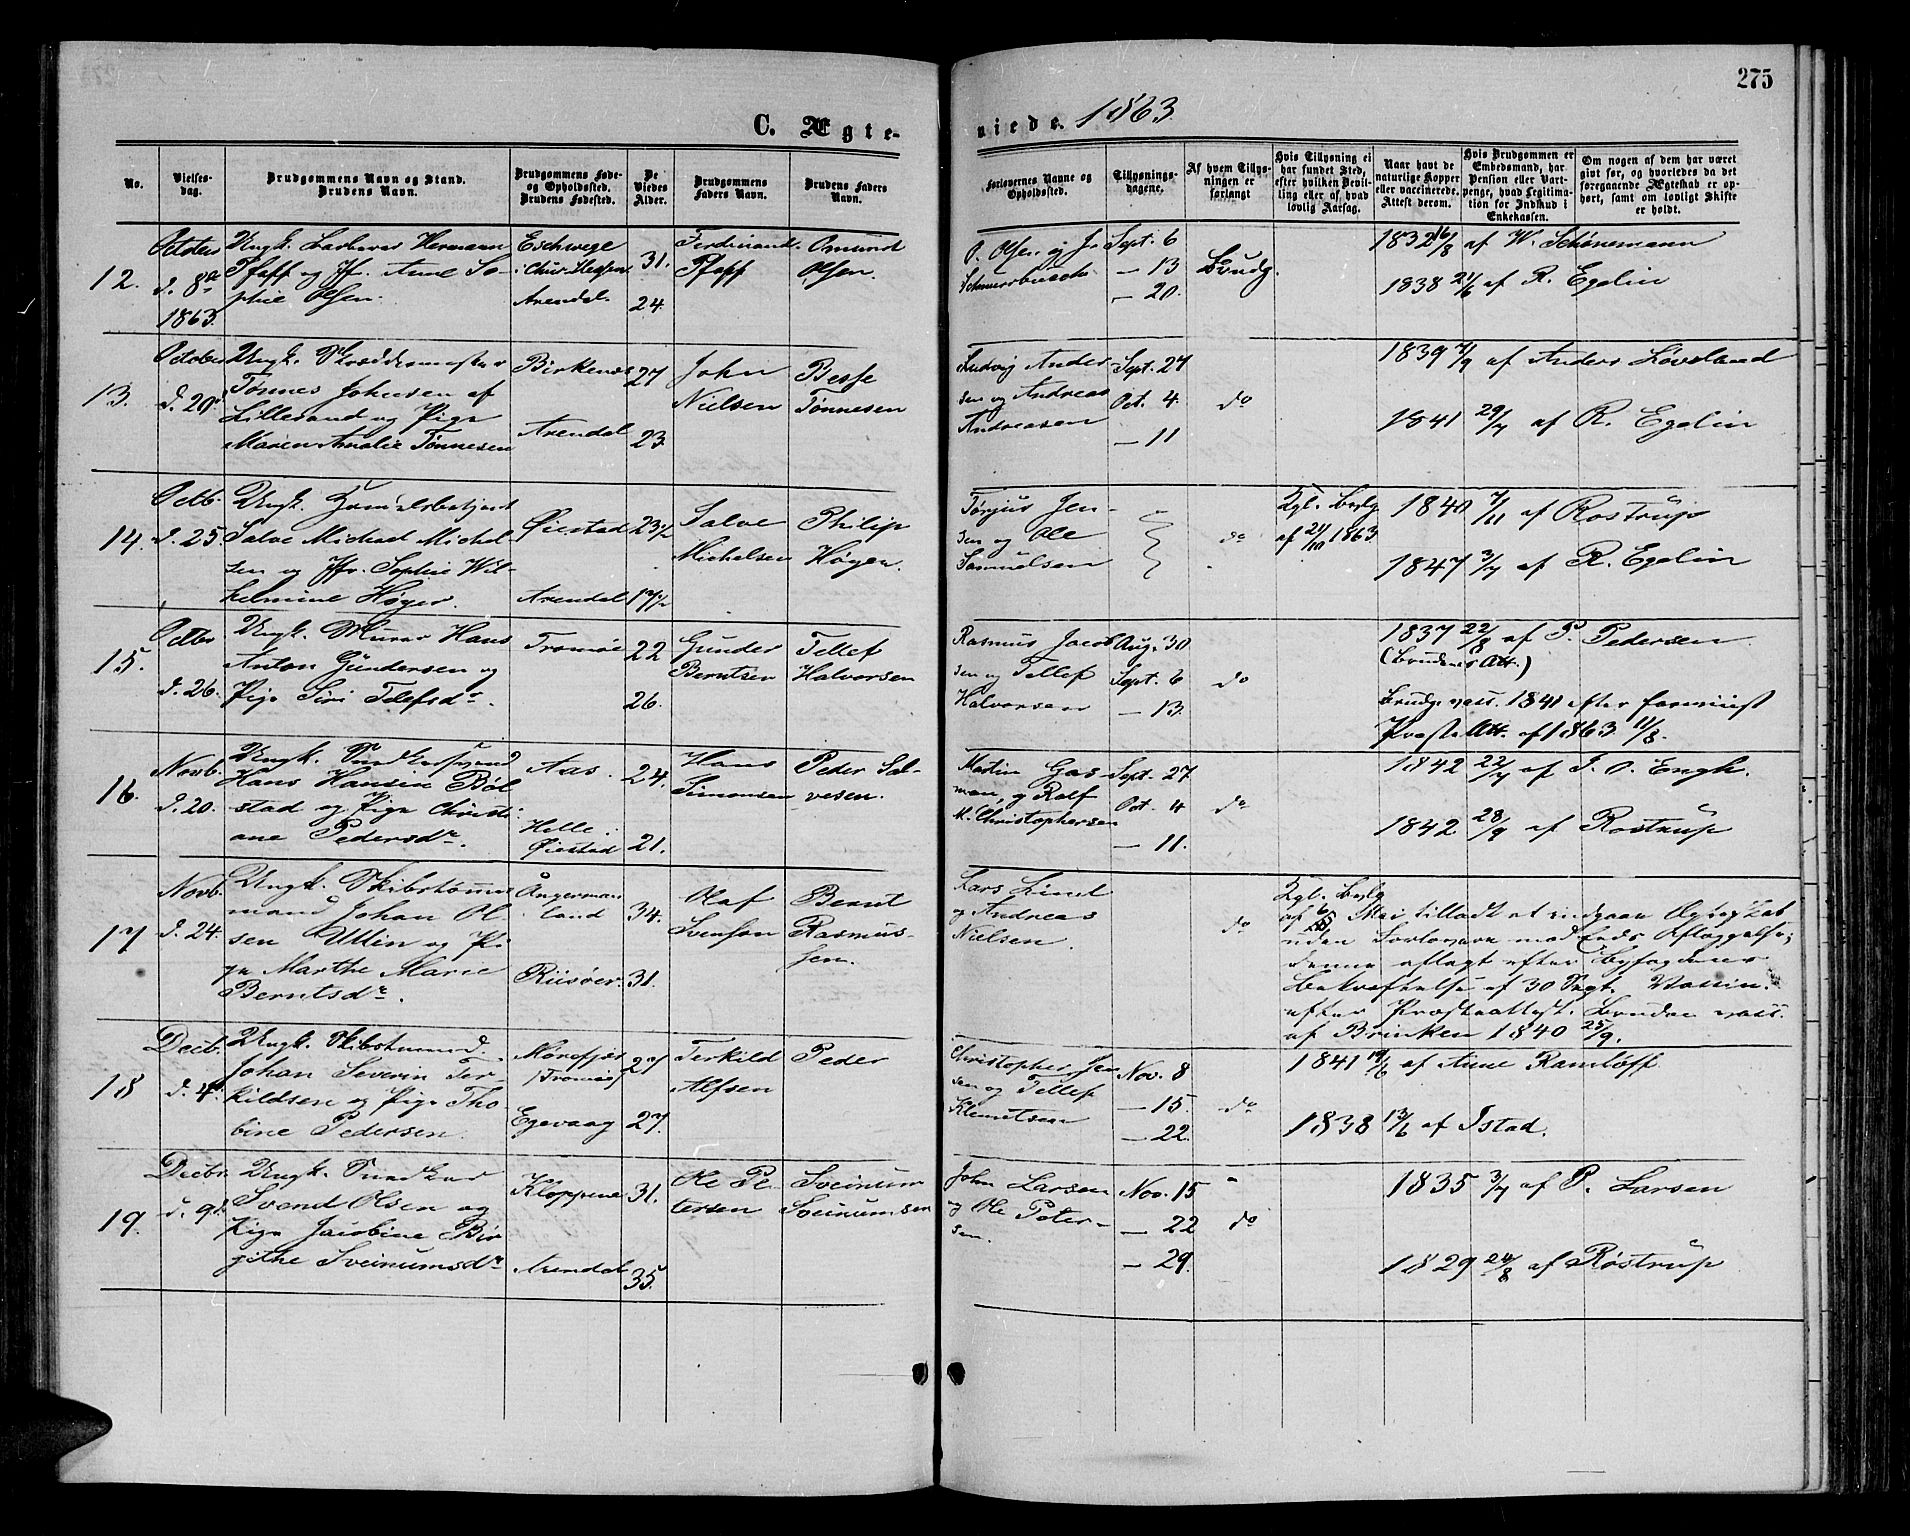 275
C. Ægte-
viede. 1863
No.
Vielses-
dag.
Brudgommens Navn og Stand.
Brudens Navn.
Brudgommens Føde-
og Opholdssted.
Brudens Fødested.
De
Viedes
Alder.
Brudgommens
Faders Navn.
Brudens Faders
Navn.
Forlovernes Navne og
Opholdssted.
Tillysnings-
dagene.
Af hvem Tillys-
ningen er
forlangt
Hvis Tillysning ei
har fundet Sted,
efter hvilken Bevil-
ling eller af hvad
lovlig Aarsag.
Naar havt de
naturlige Kopper
eller vaccinerede.
Attest derom.
Hvis Brudgommen er
Embedsmand, har
Pension eller Vart-
penge, hvad Legitima-
tion for Indskud i
Enkekassen.
Om nogen af dem har været
gift før, og hvorledes da det
foregaaende Ægteskab er op-
hørt, samt om lovligt Skifte
er holdt.
12.
October
d. 8de
1863.
Ungk. Barberer Hermann
Pfaff og Jfr. Anne So-
phie Olsen.
Eschwege
i Chur Hessen
Arendal.
31.
24.
Ferdinand
Pfaff
Omund
Olsen.
O. Olsen og J.
Sept. 6
— 13
— 20.
Brudg.
1832 16/8 af W. Schønemann
1838 21/6 af R. Egelin
13.
October
d. 20
Ungk. Skræddermester
Tønnes Johnsen af
Lillesand og Pige
Maren Amalie Tønnesen
Birkenæs
Arendal
27
23.
John
Nielsen
Besse
Tønnesen
Ludvig Ander-
sen og Andreas
Andreasen
Sept. 27
Oct. 4.
— 11
do
1839 7/9 af Anders Løveland
1841 29/7 af R. Egelin
14.
Octb.
d. 25.
Ungk. Handelsbetjent
Salve Michael Michel-
sen og Jfr. Sophie Wil-
helmine Høyer.
Øiestad
Arendal
23 1/2
17 1/2
Salve
Michelsen
Philip
Høyer.
Tønjus Jen-
sen og Ole
Samuelsen
do
Kgl. Bevlg
af 21/10 1863
1840 7/11 af Rostrup
1847 3/7 af R. Egelin
15.
Octbr
d. 26.
Ungk. Murer Hans
Anton Gundersen og
Pige Siri Tellefsdr.
Tromøe
22
26.
Gunder
Berntsen
Tellef
Halvorsen
Rasmus Jacob-
sen og Tellef
Halvorsen
Aug. 30
Sept. 6
— 13.
do
1837 22/8 af P. Pedersen
(Brudens Att.)
Brudg. vacc. 1841 efter foreviist
Præste Att. af 1863 11/8.
16.
Novb.
d. 20.
Ungk. Snedkersvend
Hans Hansen Bøl-
stad og Pige Christi-
ane Pedersdr.
Aas.
Helle i
Øiestad
24.
21.
Hans
Simonsen
Peder Sal-
vesen.
Martin Gas-
man, og Rolf
M. Christophersen
Sept. 27
Oct. 4
— 11.
do
1842 22/7 af J. O. Engh.
1842. 28/9 af Rostrup
17
Novb.
d. 24.
Ungk. Skibstømmer-
mand Johan Ol-
sen Ullin og Pi-
ge Marthe Marie
Berntsdr.
Ångerman-
land
Riisøer.
34.
31.
Olaf
Svenson
Bernt
Rasmus-
sen.
Lars Lind
og Andreas
Nielsen.
do
Kgl. Bevlg
af 6 Mai tilladt at indgaae Ægteskab
uden Forlovere mod Eds Aflæggelse;
denne aflagt efter Byfogdens
Bekræftelse af 30 Sept. Vaccin.
efter Præsteattest. Bruden vacc.
af Brinken 1840 25/9.
18
Decb.
d. 4.
Ungk. Skibstømmerm.
Johan Severin Ter-
kildsen og Pige Tho-
bine Pedersen.
Morefjær
(Tromøe)
Egevaag
27
27.
Terkild
Alfsen
Peder
Christopher Jen-
sen og Tellef
Klemetsen
Nov. 8
— 15.
— 22.
do
1841 19/6 af Anne Ramløff
1838 13/6 af Istad.
19.
Decbr.
d. 9.
Ungk. Snedker
Svend Olsen og
Pige Jacobine Bir-
githe Sveinumsdr
Kloppene
Arendal
31.
35.
Ole Pe-
tersen
Sveinum
Sveinumsen
John Larsen
og Ole Peter-
sen.
Nov. 15
— 22
— 29.
"
do
1835 3/7 af P. Larsen
1829 24/8 af Rostrup